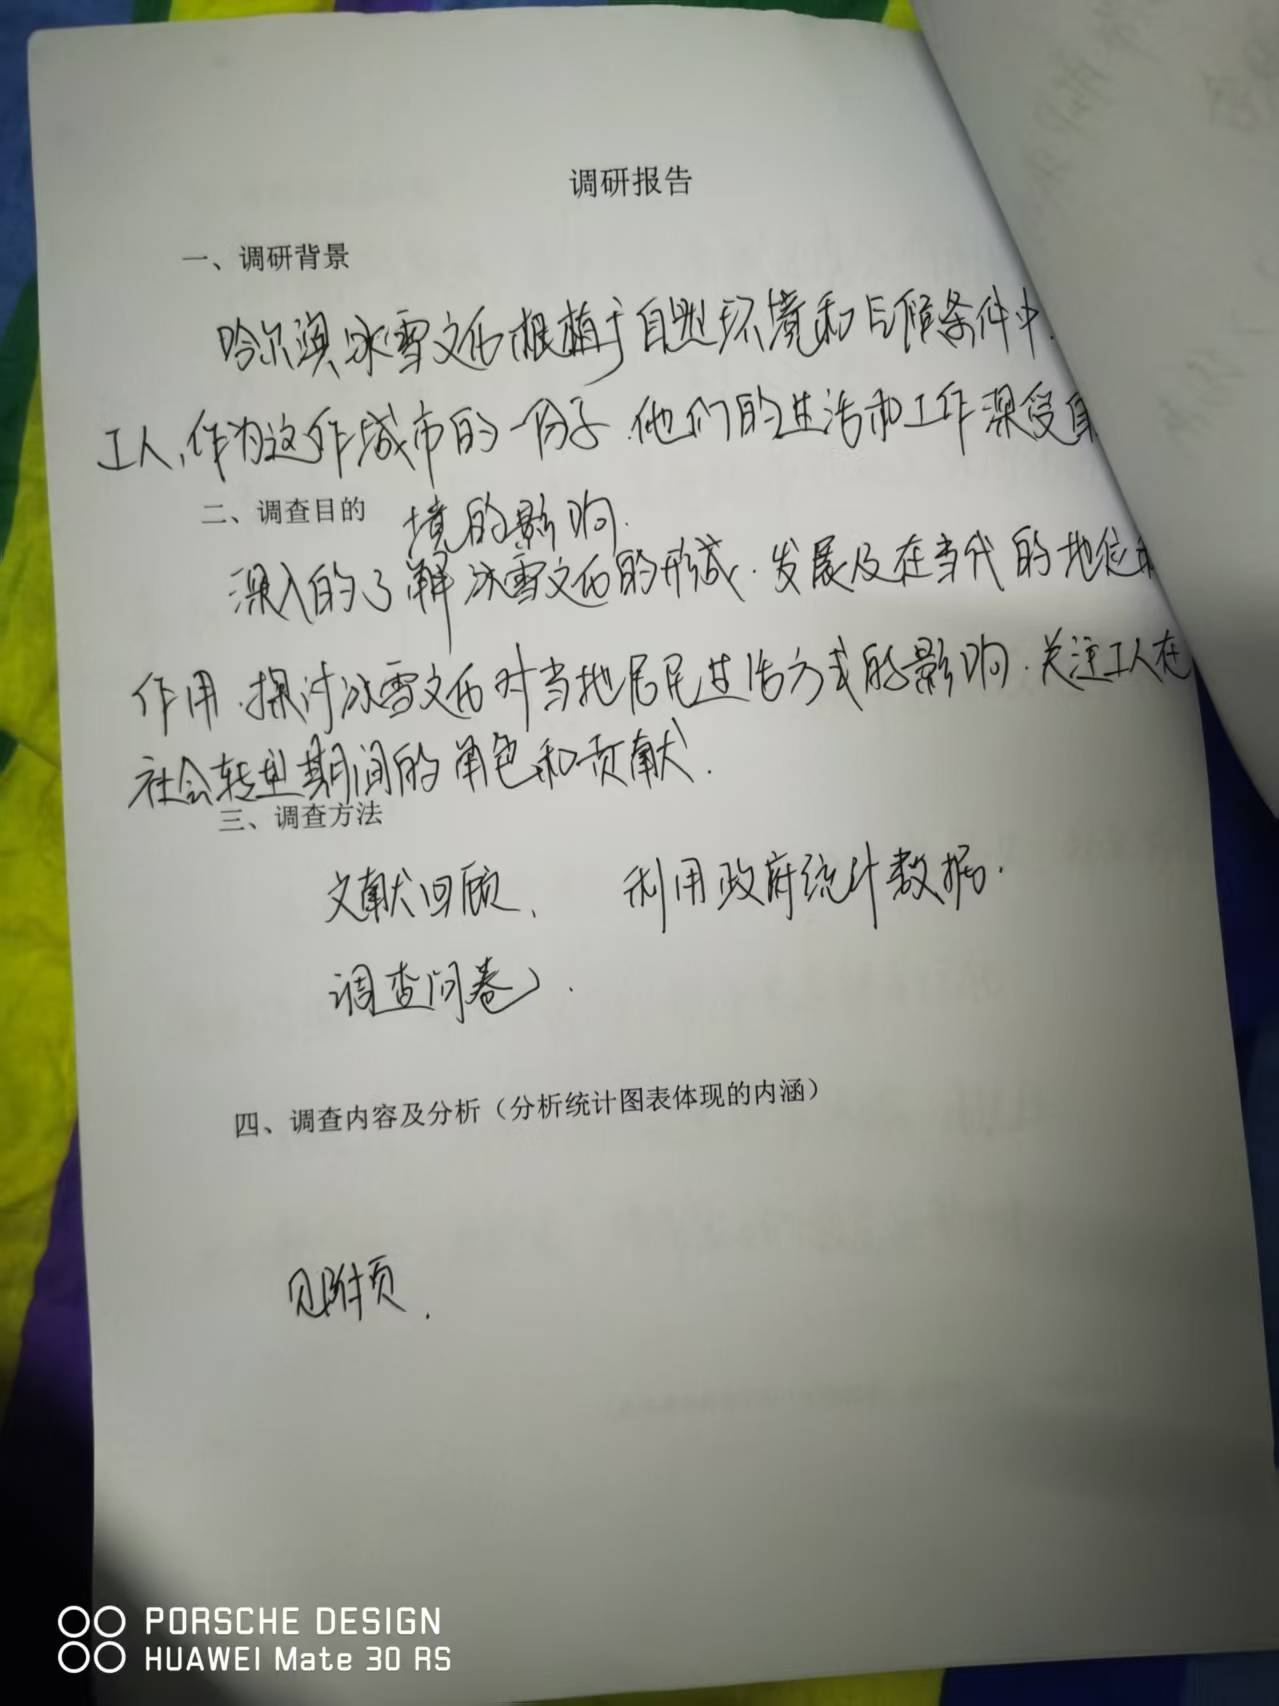 调研报告
一、调研背景
哈尔滨冰雪文化根植于自然环境和气候条件中.
工人,作为这个城市的一份子.他们的生活和工作深受自
二、调查目的 境的影响.
深入的了解冰雪文化的形成.发展及在当代的地位和
作用.探讨冰雪文化对当地居民生活方式的影响.关注工人在
社会转型期间的角色和贡献.
三、调查方法
文献回顾、 利用政府统计数据.
调查问卷.
四、调查内容及分析(分析统计图表体现的内涵)
见附页.
PORSCHE DESIGN
HUAWEI Mate 30 RS